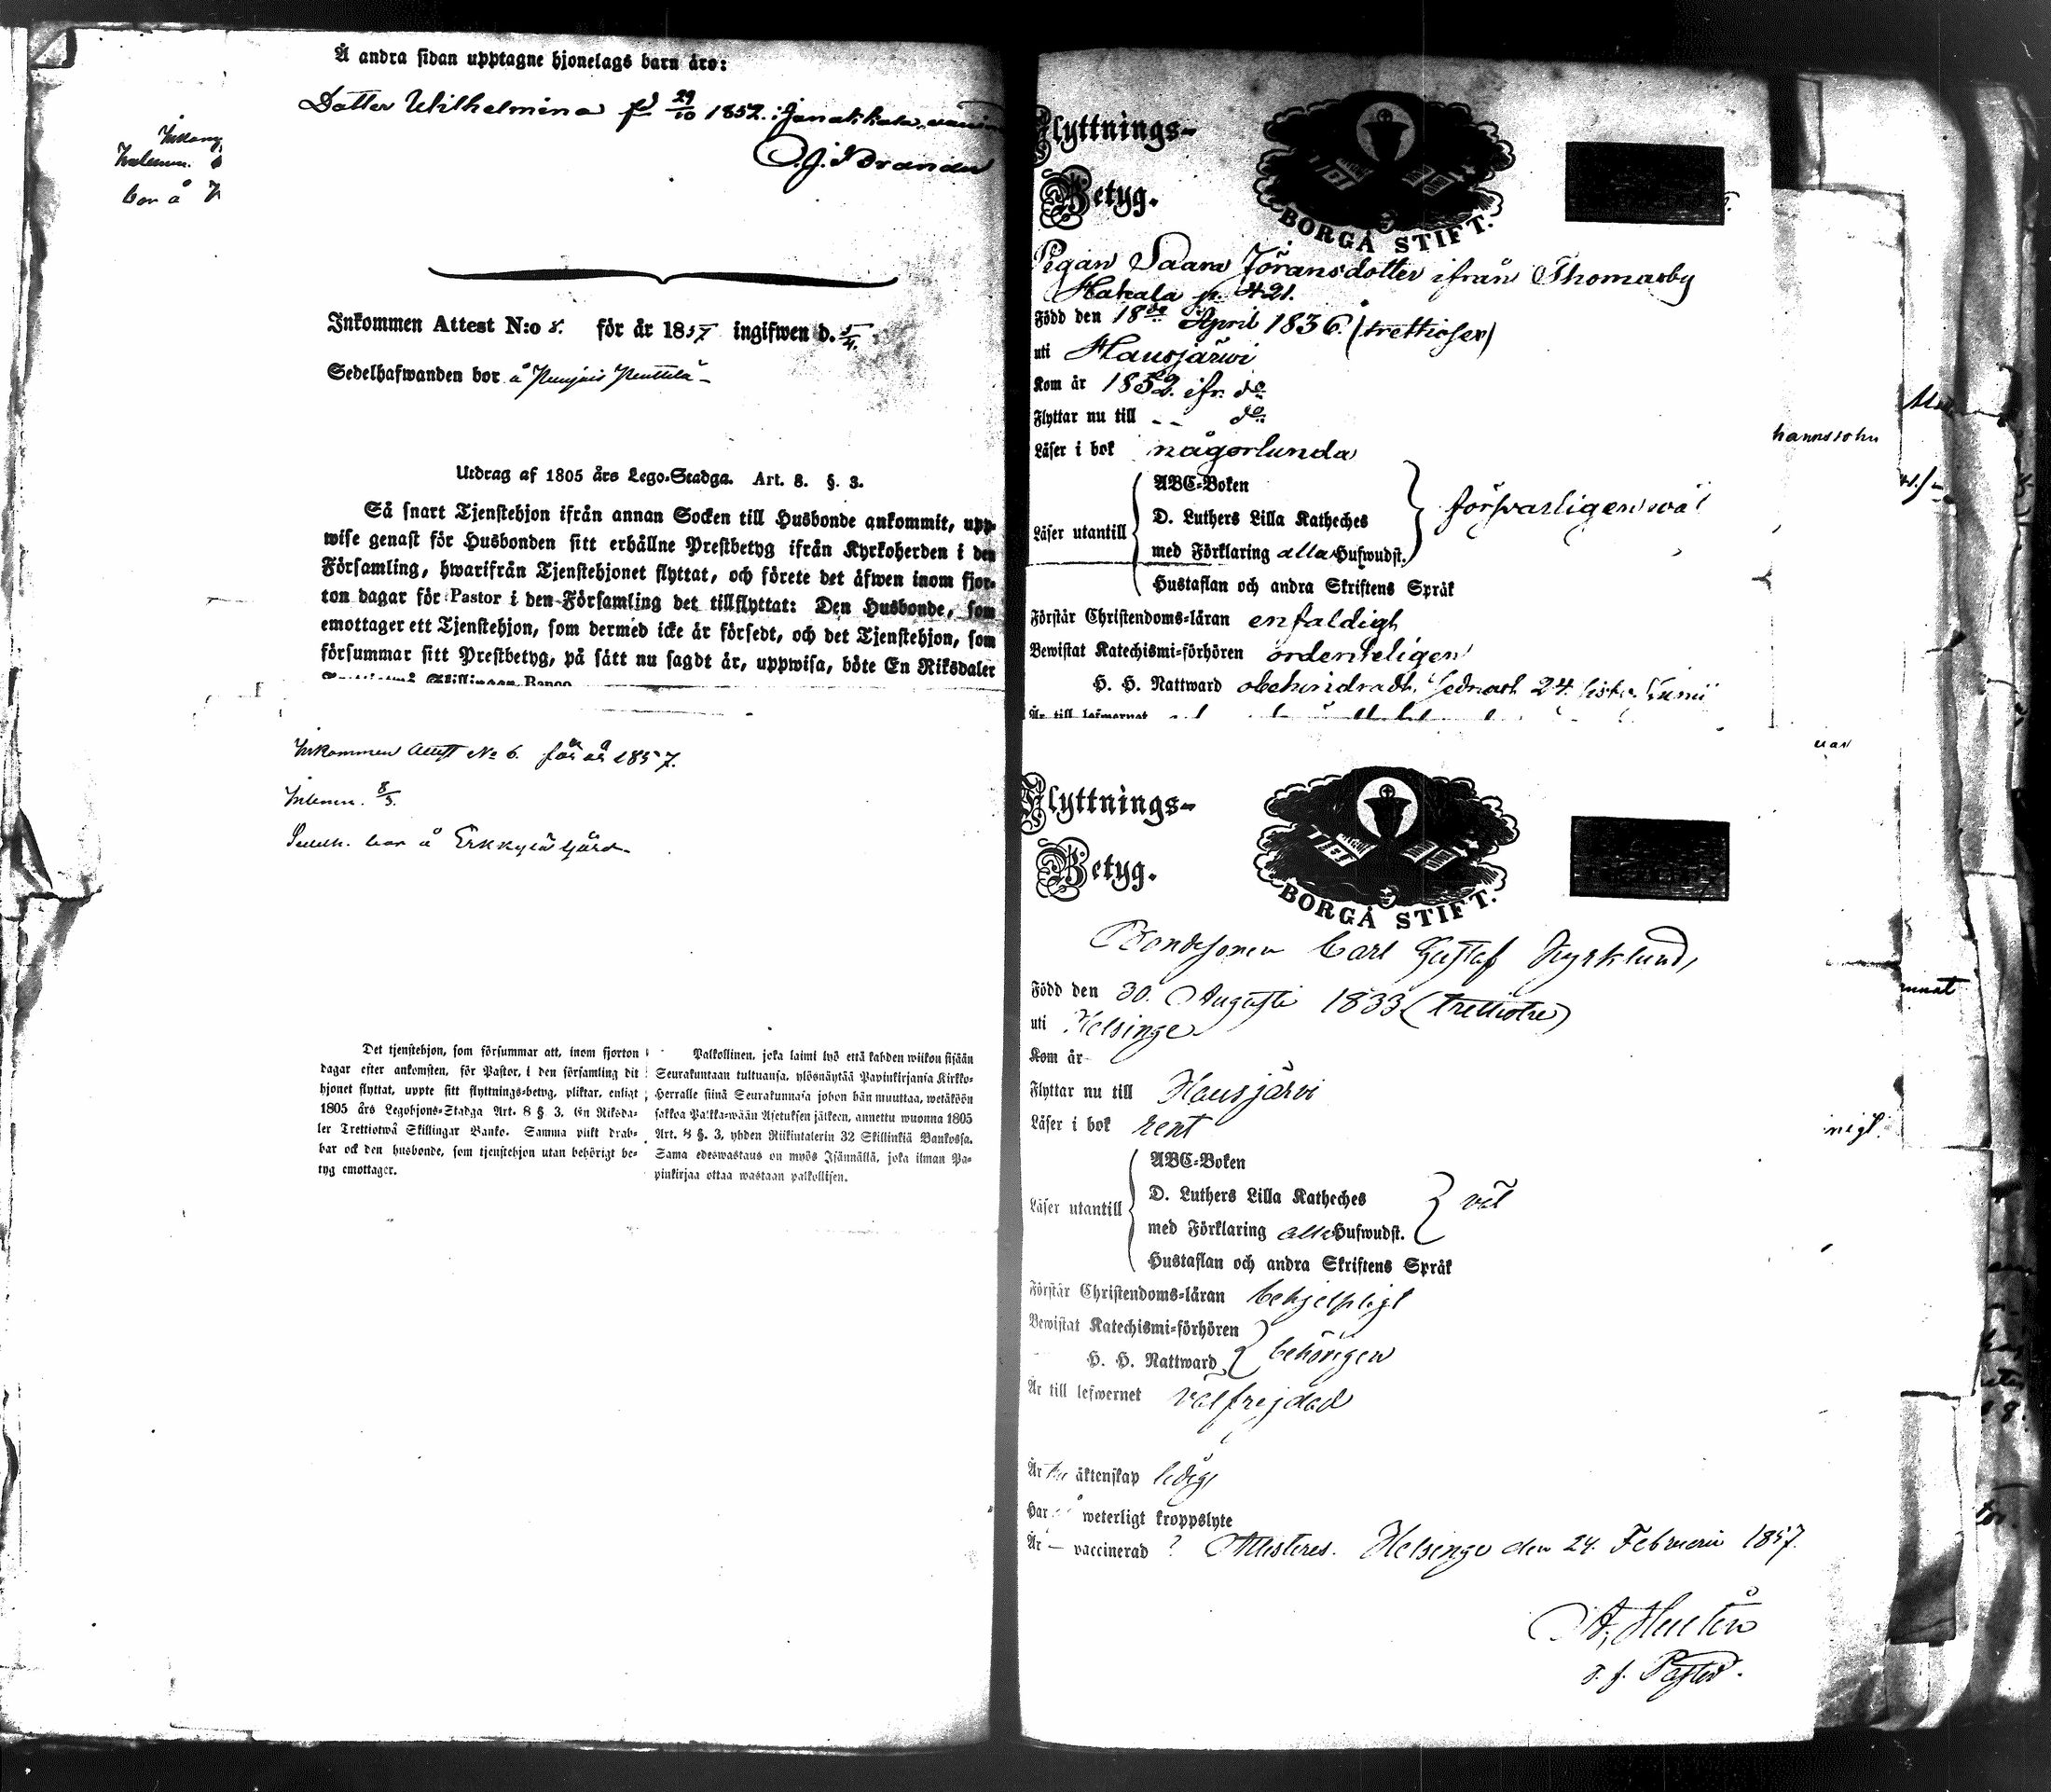 Å andra sidan upptagne hjonelags barn äro:
Dotter Wilhelmina fd 29/10 1852. i Janakkala,
Inlemn.
bor å
Inkommen Attest N:o 8. för år 1857 ingifwen d. 5/4.
Sedelhafwanden bor å Punjois Penttilä
Utdrag af 1805 års Lego-Stadga. Art. 8. §. 3.
Så snart Tjenstehjon ifrån annan Socken till Husbonde ankommit, upp-
wise genast för Husbonden sitt erhållne Prestbetyg ifrån Kyrkoherden i den
Församling, hwarifrån Tjenstehjonet flyttat, och förete det äfwen inom fjor-
ton dagar för Pastor i den Församling det tillflyttat: Den Husbonde, som
emottager ett Tjenstehjon, som dermed icke är försedt, och det Tjenstehjon, som
försummar sitt Prestbetyg, på sätt nu sagdt är, uppwisa, böte En Riksdaler
Trettiotwå Skillingar Banco
Inkommen Attest No 6. för år 1857.
Inlemn. 8/3.
Sedelh. bor å Erkkylä Gård.
Det tjenstehjon, som försummar att, inom fjorton
dagar efter ankomsten, för Pastor, i den församling dit
hjonet flyttat, uppte sitt flyttnings-betyg, pliktar, enligt
1805 års Legohjons-Stadga Art. 8 §. 3. En Riksda-
ler Trettiotwå Skillingar Banko. Samma plikt drab-
bar ock den husbonde, som tjenstehjon utan behörigt be-
tyg emottager.
Palkollinen, joka laimi lyö että kahden wiikon sisään
Seurakuntaan tultuansa, ylösnäytää Papinkirjansa Kirkko-
Herralle siinä Seurakunnasa johon hän muuttaa, wetäköön
sakkoa Palkka-wään Asetuksen jälkeen, annettu wuonna 1805
Art. 8 §. 3, yhden Riikintalerin 32 Skillinkiä Bankossa.
Sama edeswastaus on myös Isännällä, joka ilman Pa-
pinkirjaa ottaa wastaan palkollisen.
Flyttnings-
Betyg.
BORGÅ STIFT.
Pigan Saara Jöransdotter ifrån Thomasby
Hakala p. 421.
Född den 18de April 1836. (trettiosex)
uti Hausjärwi
Kom år 1852. ifr. do
Flyttar nu till -- do
Läser i bok någorlunda
Läser utantill
ABC-Boken
D. Luthers Lilla Katheches
med Förklaring alla Hufwudst.
Hustaflan och andra Skriftens Språk
försvarligen wäl
Förstår Christendoms-läran enfaldigt
Bewistat Katechismi-förhören ordenteligen
H. H. Nattward obehindradt, sednast 24. sistl. Junii
Är till lefwernet
Flyttnings-
Betyg.
BORGÅ STIFT.
Bondesonen Carl Gustaf Nyrklund,
Född den 30. Augusti 1833 (trettiotre)
uti Helsinge
Kom år
Flyttar nu till Hausjärvi
Läser i bok rent
Läser utantill
ABC-Boken
D. Luthers Lilla Katheches
med Förklaring alla Hufwudst.
Hustaflan och andra Skriftens Språk
väl
Förstår Christendoms-läran behjelpligt
Bewistat Katechismi-förhören
H. H. Nattward
behörigen
Är till lefwernet välfrejdad
Är till äktenskap ledig
Har weterligt kroppslyte
Är — vaccinerad ? Attesteres. Helsinge den 24. Februarii 1857.
v. f. Pastor.